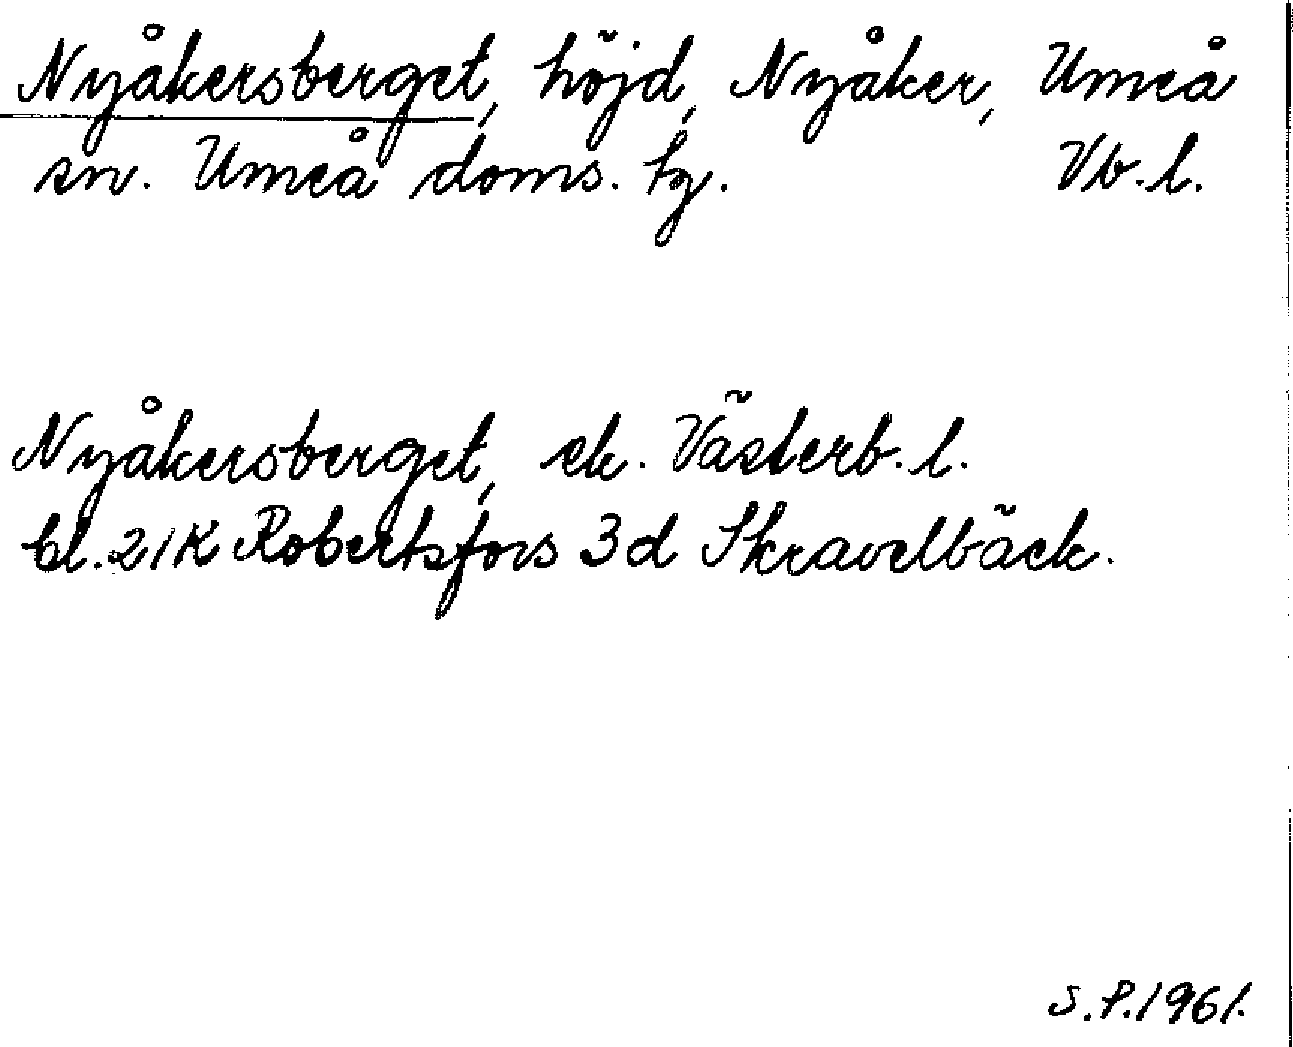 Nyåkersberget, höjd, Nyåker, Umeå
sn. Umeå doms. tg. Vb.l.
Nyåkersberget, ek. Västerb.l.
bl. 21K Robertsfors 3d Skravelbäck.
S.P.1961.